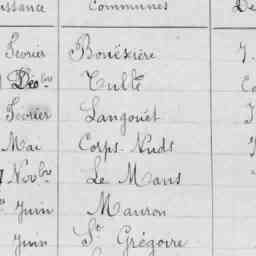 issance Communes De
Février Bouëxière
Déc bre Tulle
Février Langouët
Mai Corps-Nuds
Nov bre Le Mans
Juin Mauron
Juin St Grégoire